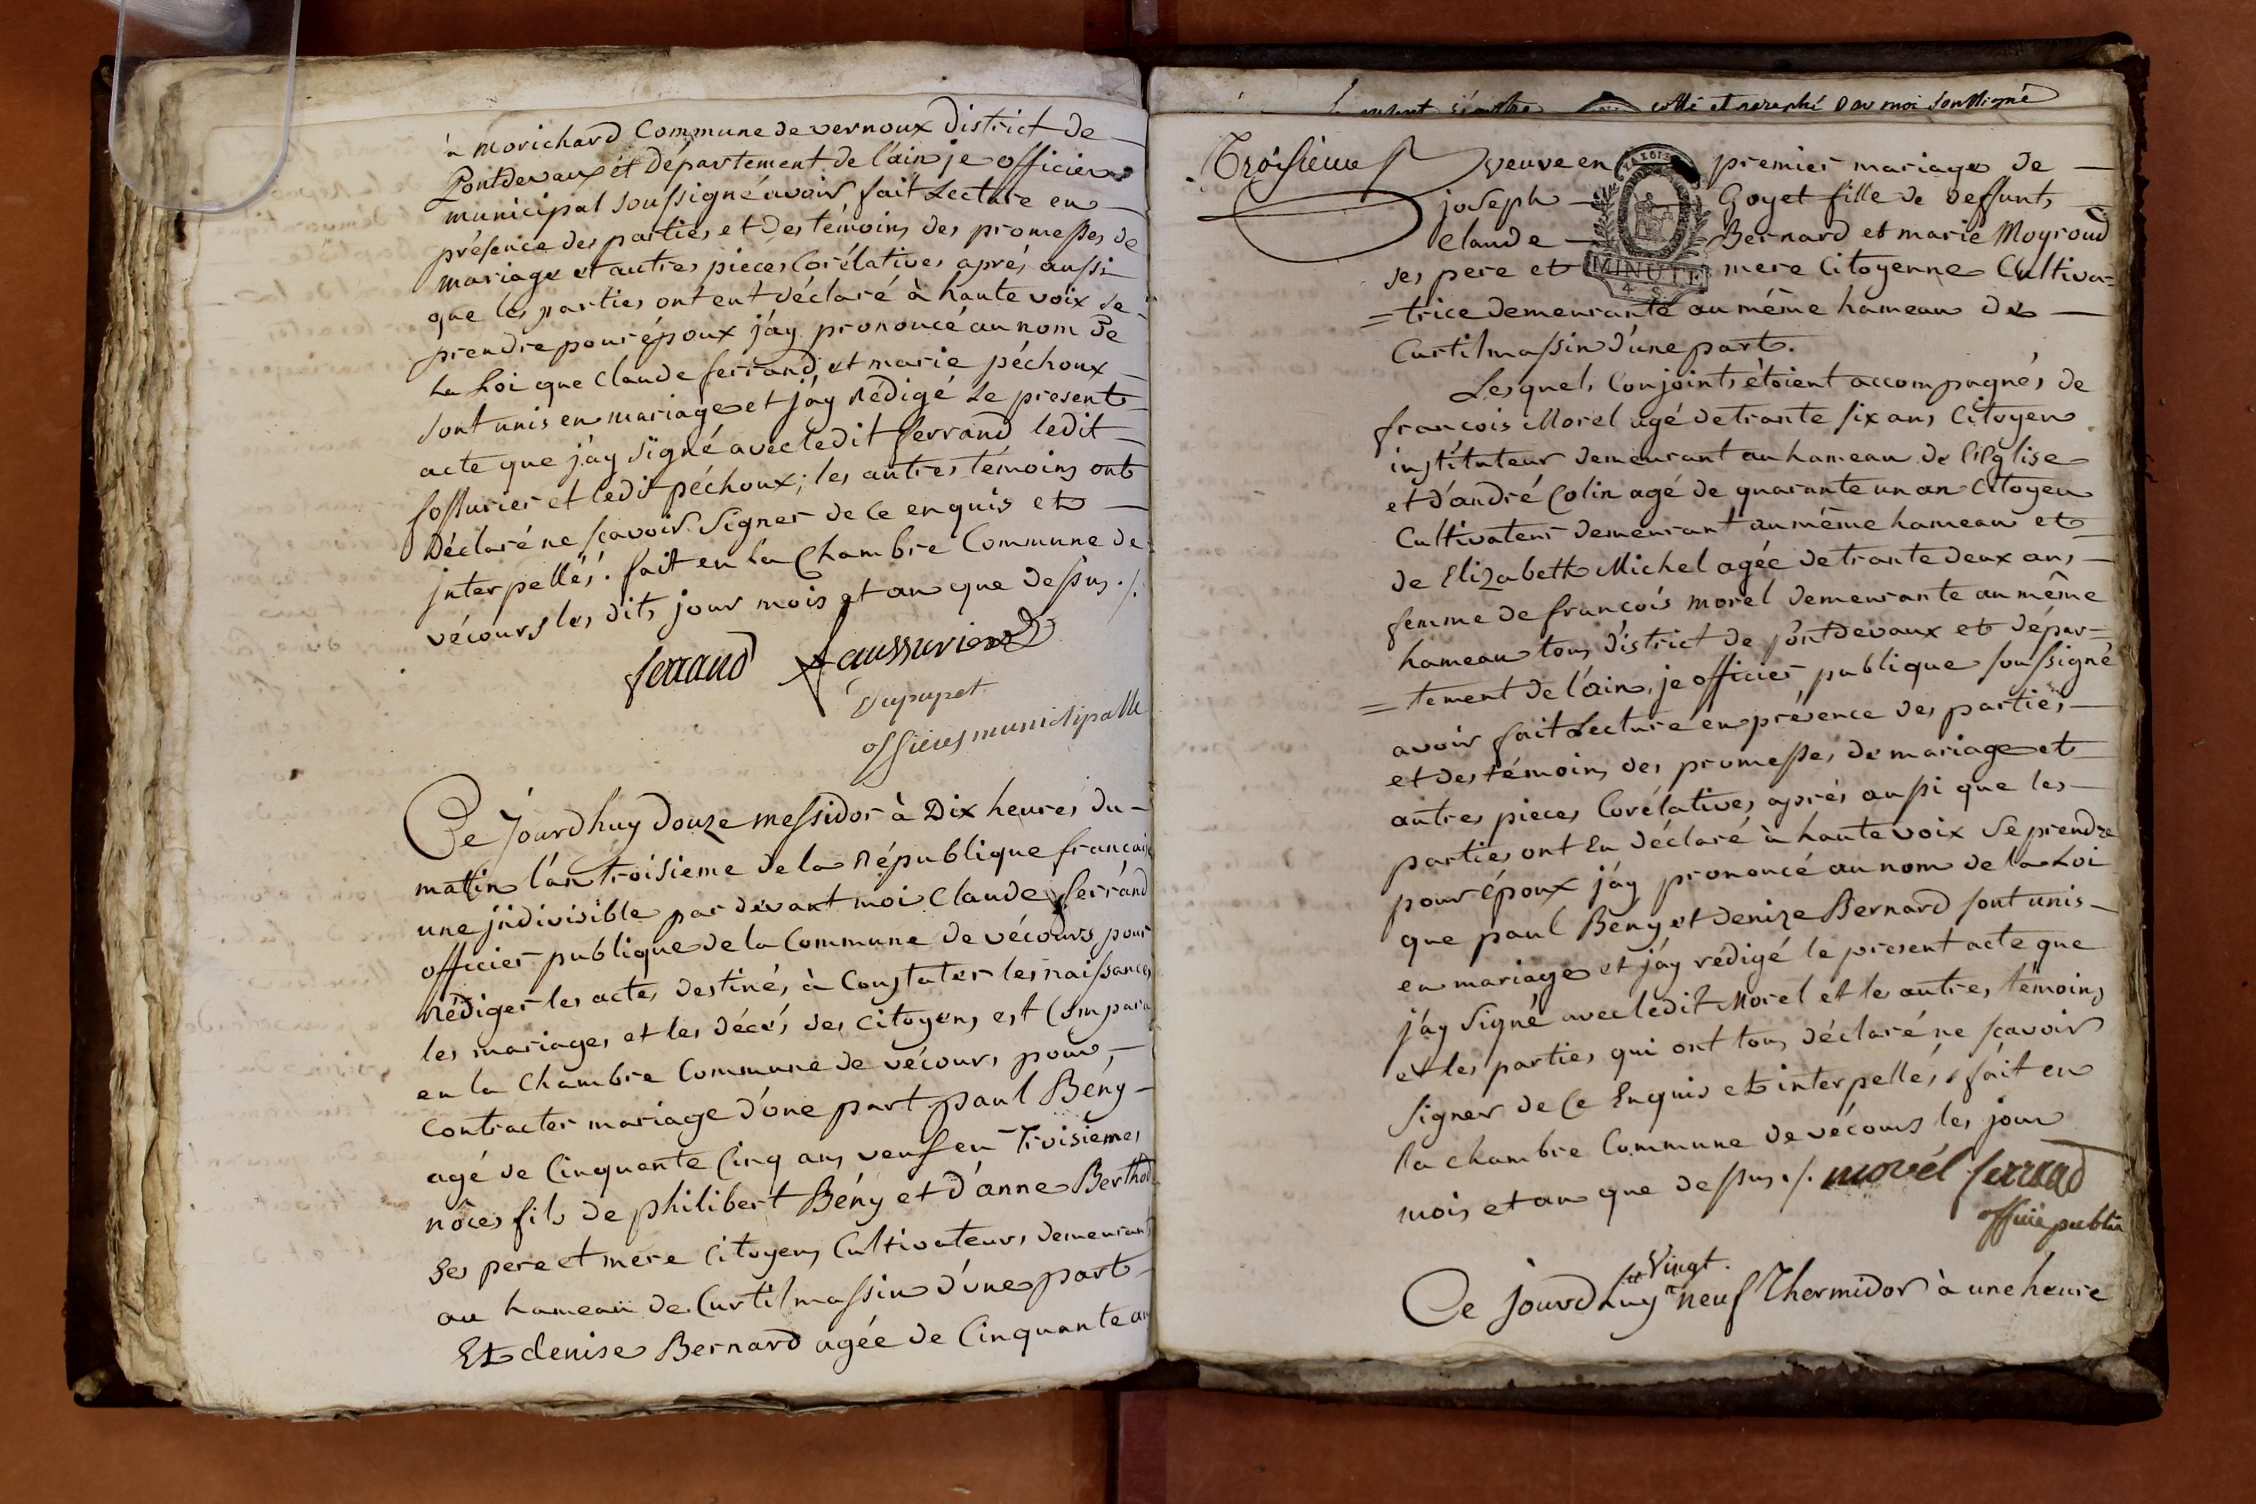 à morichard Commune de vernoux district de
Pontdevaux et département de l'ain je officier
municipal soussigné avoir fait Lecture en
présence des parties et des témoins des promesses de
mariage et autres pieces Corélatives aprés aussi
que les parties ont eut déclaré à haute voix se
prendre pour époux j'ay prononcé au nom de
La Loi que Claude ferrand et marie péchoux
sont unis en mariage et j'ay rédigé Le present
acte que j'ay signé avec ledit ferrand ledit
fossurier et ledit péchoux; les autres témoins ont
Déclaré ne sçavoir Signer de Ce enquis et
interpellés. fait en La Chambre Commune de
vécours les dits jour mois et an que dessus ./.
ferrand faussurier
Dupupet
officier municipalle
Ce Jourdhuy Douze messidor à Dix heures du
matin l'an troisieme de la République francaise
une indivisible par devant moi Claude ferrand
officier publique de la Commune de vécours pour
Rédiger les actes destinés à Constater les naissances
les mariages et les décés des Citoyens est Compara
en la Chambre Commune de vécours pour
Contracter mariage d'une part paul Bény
agé de Cinquante Cinq ans veuf en Troisiemes
nôces fils de philibert Bény et d'anne Berthod
Ses pere et mere Citoyens Cultivateurs demeurant
au hameau de Curtilmassin d'une part
Et denise Bernard agée de Cinquante an
cotté et paraphé par moi soussigné
Troisieme
veuve en premier mariage de
joseph Goyet fille de deffunts
Claude Bernard et marie Moyroud
ses pere et mere Citoyenne Cultiva=
MINUTE
4 S
=trice demeurante au même hameau de
Curtilmassin d'une part.
Lesquels Conjoints étoient accompagnés de
francois Morel agé de trante six ans Citoyen
instituteur demeurant au hameau de l'Eglise
et d'andré Colin agé de quarante un an Citoyen
Cultivateur demeurant au même hameau et
de Elizabeth Michel agée de trante deux ans
femme de francois morel demeurante au même
hameau tous district de pontdevaux et dépar=
=tement de l'ain, je officier publique soussigné
avoir fait Lecture en présence des parties
et des témoins des promesses de mariage et
autres pieces Corélatives aprés aussi que les
parties ont Eu déclaré à haute voix Se prendre
pour époux j'ay prononcé au nom de la Loi
que paul Beny et denize Bernard sont unis
en mariage et j'ay rédigé le present acte que
j'ay Signé avec ledit Morel et le autres témoins
et les parties qui ont tous déclaré ne sçavoir
signer de Ce Enquis et interpellés. fait en
la chambre Commune de vécours les jour
mois et an que dessus ./. morél ferrand
officié public
Vingt
Ce jourdhuy neuf Thermidor à une heure